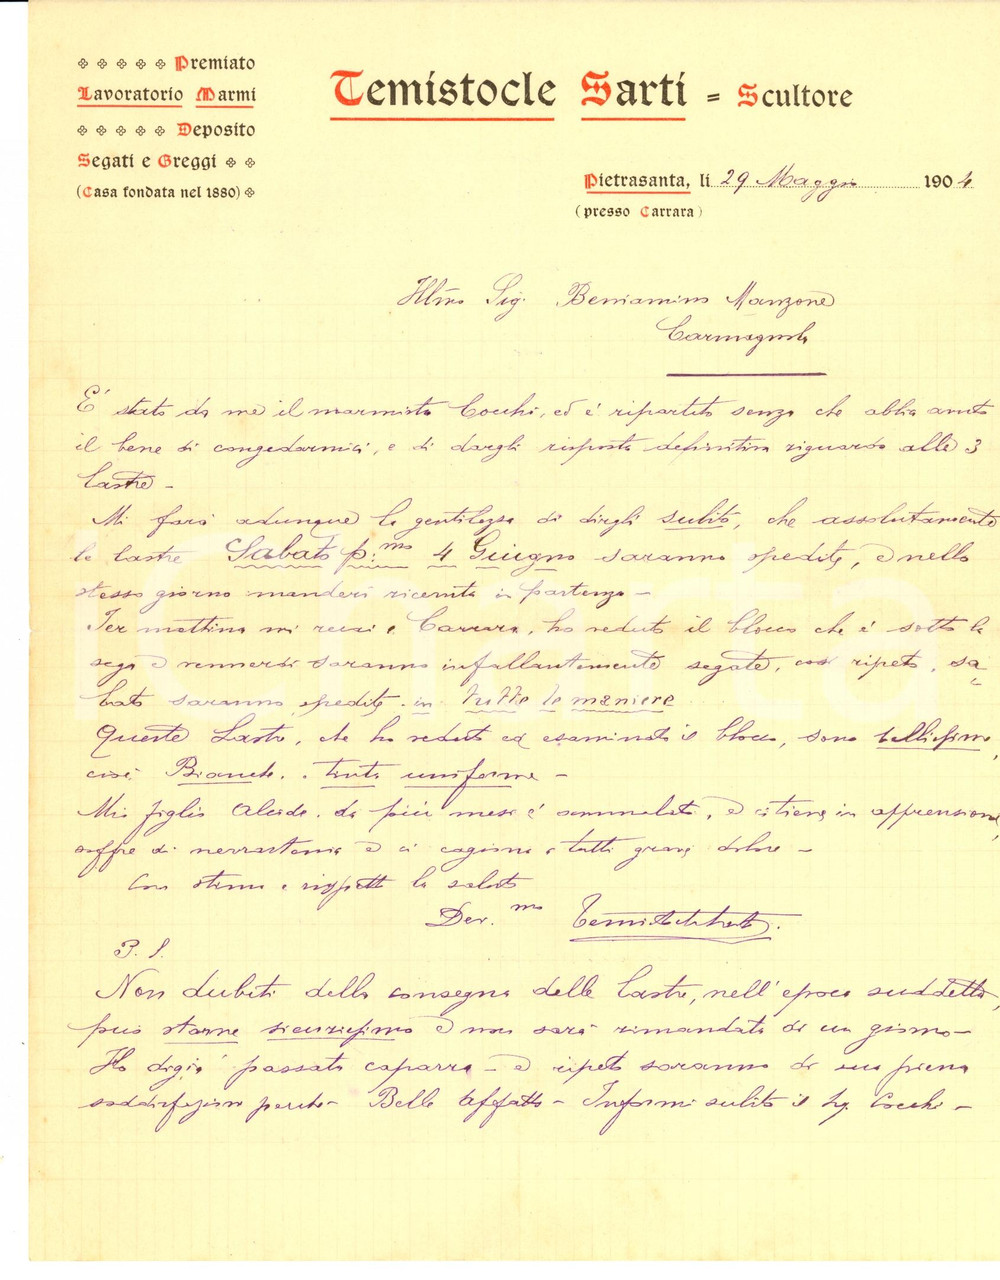 Premiato
Lavoratorio Marmi
Deposito
Segati e Greggi
(Casa fondata nel 1880)
Temistocle Sarti = Scultore
Pietrasanta, li 29 Maggio 1904
(presso Carrara)
Ill.mo Sig. Beniamino Manzone
Carmagnola
E' stato da me il marmista Cocchi, ed è ripartito senza che abbia avuto
il bene di congedarmici, e di dargli risposta definitiva riguardo alle 3
lastre -
Mi farà adunque la gentilezza di dirgli subito, che assolutamente
le lastre Sabato p.mo 4 Giugno saranno spedite, e nello
stesso giorno manderò ricevuta in partenza -
Ier mattina mi recai a Carrara, ho veduto il blocco che è sotto la
sega e vennerdì saranno infallantemente segate, così ripeto, sa=
bato saranno spedite in tutte le maniere
Queste Lastre, che ho veduto ed esaminato il blocco, sono bellissime,
cioè Bianche e tinta uniforme -
Mio figlio Alcide da più mesi è ammalato, e ci tiene in apprensione,
soffre di nevrastenia e ci cagiona a tutti grave dolore -
Con stima e rispetto la saluto
Dev.mo Temistocle Sarti
P. S.
Non dubiti della consegna delle lastre, nell'epoca suddetta,
può starne sicurissimo e non sarà rimandata di un giorno -
Ho digià passato caparra - e ripeto saranno di sua piena
soddisfazione perchè - Belle affatto - Informi subito il Sig. Cocchi -